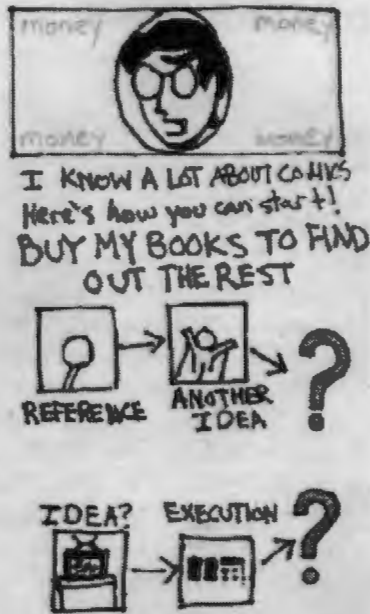 money money
money money
I KNOW A LOT ABOUT COMICS
Here's how you can start!
BUY MY BOOKS TO FIND
OUT THE REST
REFERENCE
ANOTHER
IDEA
?
IDEA?
EXECUTION
?